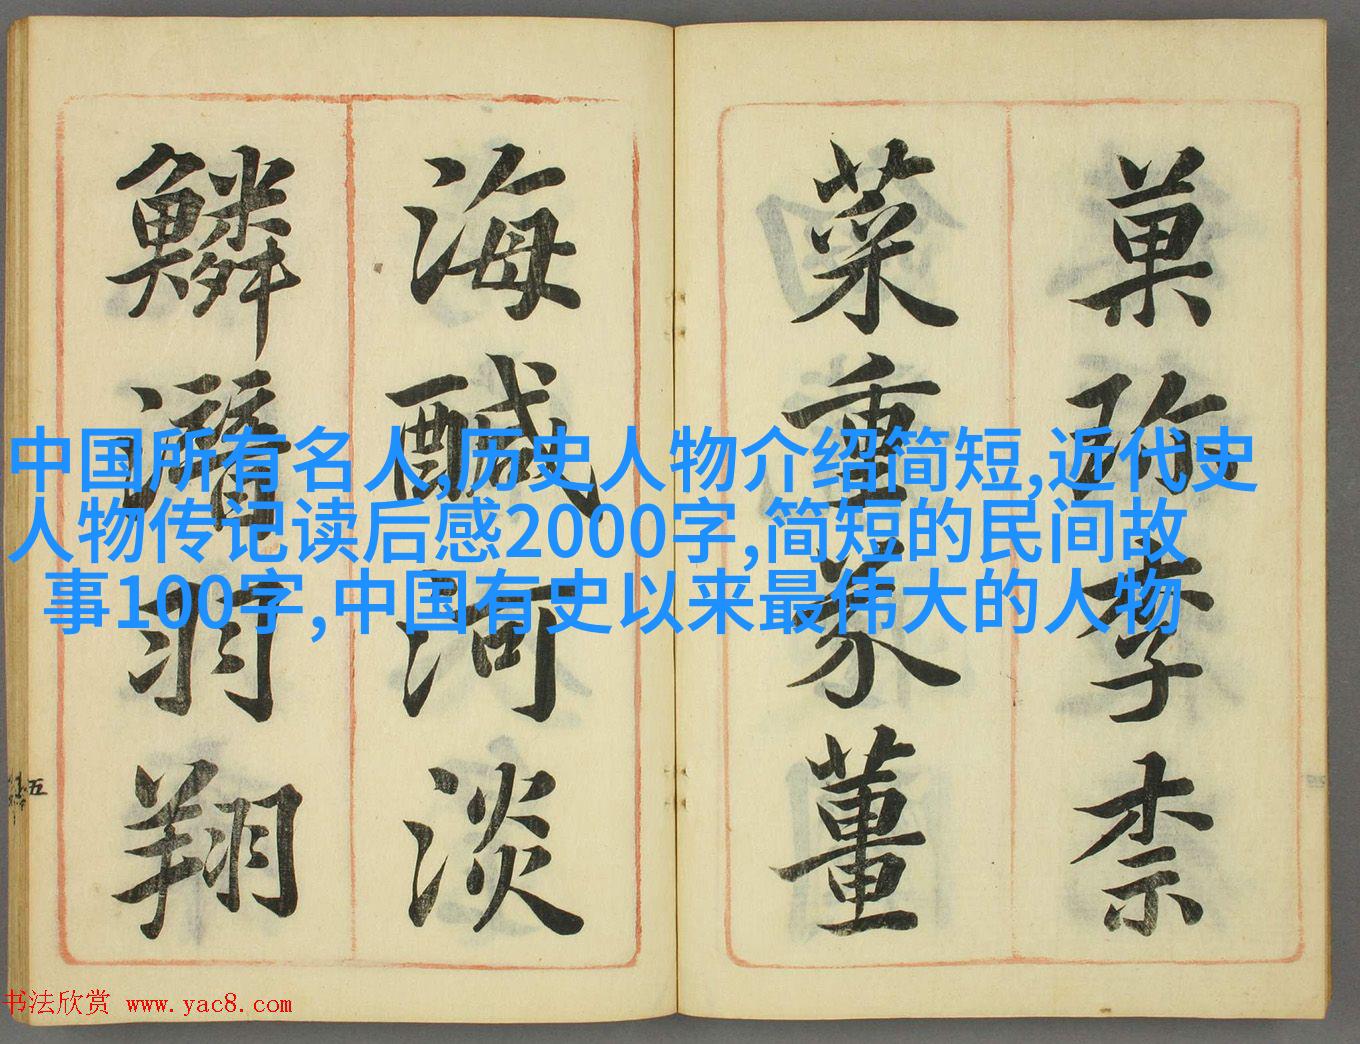 菓珎李柰
菜重芥薑
海醎河淡
鱗潛羽翔
五
中国所有名人,历史人物介绍简短,近代史
人物传记读后感2000字,简短的民间故
事100字,中国有史以来最伟大的人物
书法欣赏 www.yac8.com